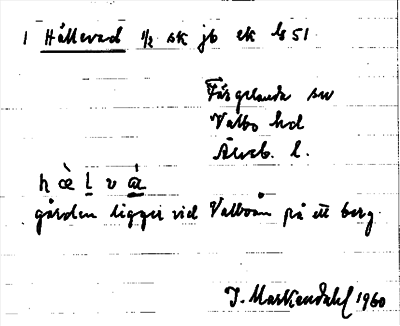 1 Hällevad 1/2 sk jb ek ls 51
Färgelanda sn
Valbo hd
Älvsb. l.
h æ̀ l v à
gården ligger vid Valboån på ett berg.
J. Markendahl 1960